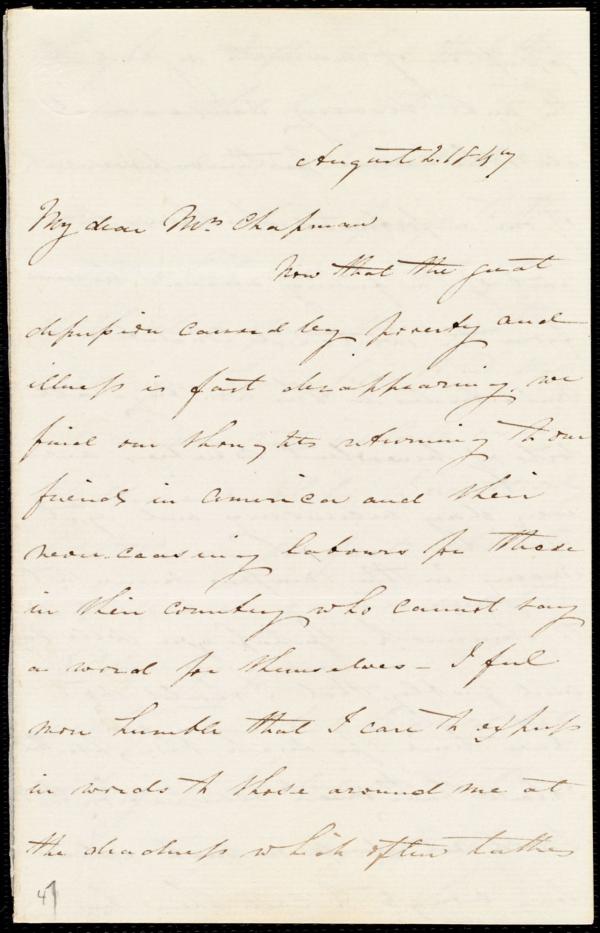 August 2. 1847
My dear Mrs Chapman
Now that the great
depression caused by poverty and
illness is fast disappearing, we
find our thoughts returning to our
friends in America and their
never-ceasing labours for those
in their country who cannot say
a word for themselves - I feel
more humble than I care to express
in words to those around me at
the deadness which often
47